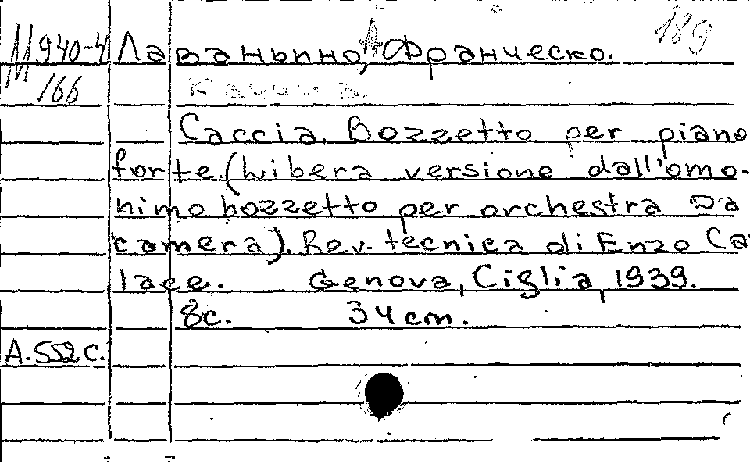 М 940-4 Лаваньино, А Франческо. 189
166
Caccia. Bozzetto per piano
forte.(Libera versione dall'omo-
nimo bozzetto per orchestra da
camera). Rev. tecnica di Enzo Ca-
lace. Genova, Ciglia, 1939.
8с. 34 cm.
A.552 c.